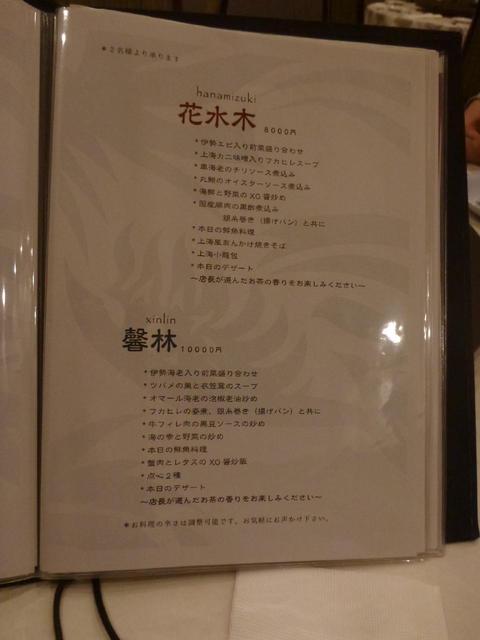 ＊2名様より承ります
hanamizuki
花水木 8000円
＊伊勢エビ入り前菜盛り合わせ
＊上海カニ味噌入りフカヒレスープ
＊車海老のチリソース煮込み
＊丸鮑のオイスターソース煮込み
＊海鮮と野菜のXO醤炒め
＊国産豚肉の黒酢煮込み
銀糸巻き（揚げパン）と共に
＊本日の鮮魚料理
＊上海風あんかけ焼きそば
＊上海小籠包
＊本日のデザート
～店長が選んだお茶の香りをお楽しみください～
xinlin
馨林 10000円
＊伊勢海老入り前菜盛り合わせ
＊ツバメの巣と衣笠茸のスープ
＊オマール海老の泡椒老油炒め
＊フカヒレの姿煮、銀糸巻き（揚げパン）と共に
＊牛フィレ肉の黒豆ソースの炒め
＊海の幸と野菜の炒め
＊本日の鮮魚料理
＊蟹肉とレタスのXO醤炒飯
＊点心2種
＊本日のデザート
～店長が選んだお茶の香りをお楽しみください～
＊お料理の辛さは調整可能です。お気軽にお声かけ下さい。